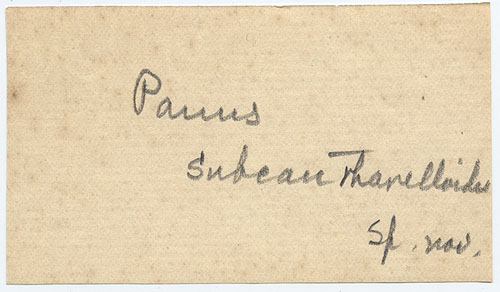 Panus
Subcantharelloides
Sp. nov.